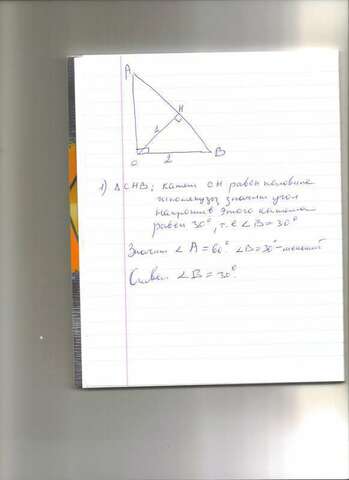 A
H
1
C
2
B
1) △CHB; катет CH равен половине
гипотенузы, значит угол
напротив этого катета
равен 30°, т.е ∠B = 30°
Значит ∠A = 60° ∠B = 30° - меньший
Ответ ∠B = 30°.